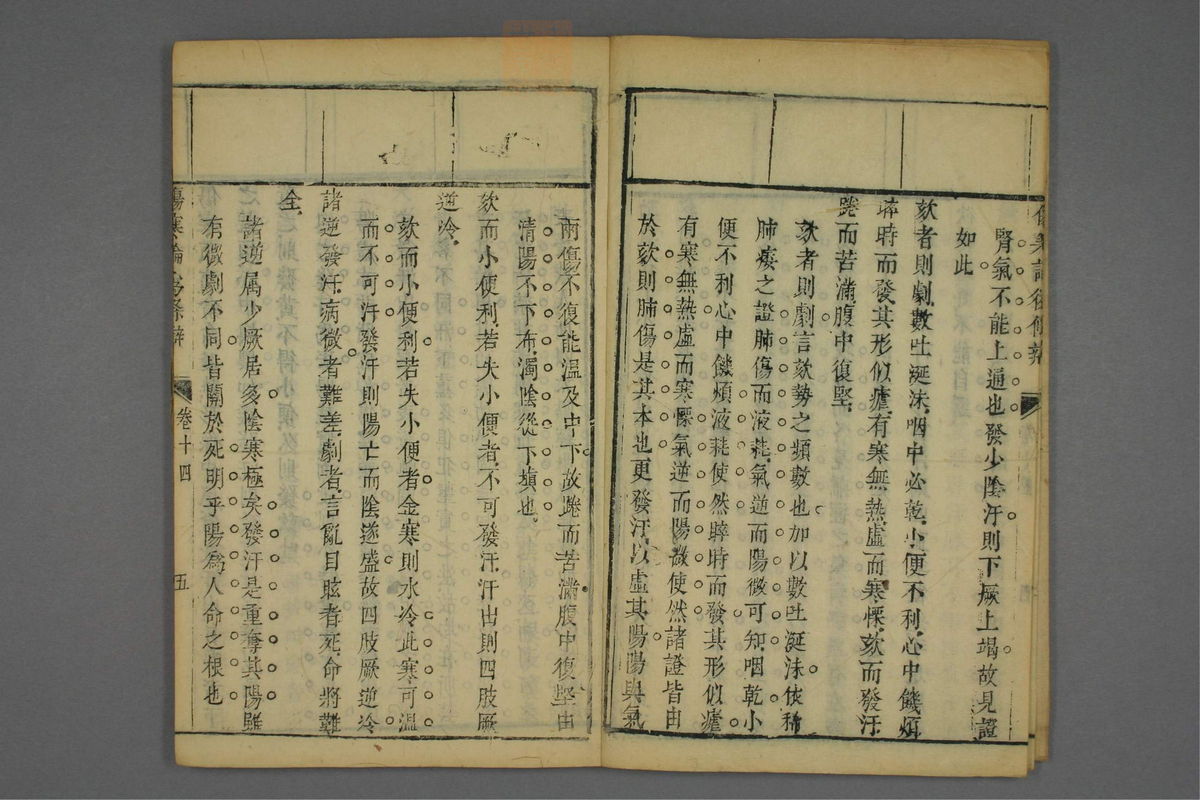 腎氣不能上通也發少陰汗則下厥上竭故見證
如此
欬者則劇數吐涎沫咽中必乾小便不利心中饑煩
晬時而發其形似瘧有寒無熱虛而寒慄欬而發汗
踡而苦滿腹中復堅
欬者則劇言欬勢之頻數也加以數吐涎沫依稀
肺痿之證肺傷而液耗氣逆而陽微可知咽乾小
便不利心中饑煩液耗使然晬時而發其形似瘧
有寒無熱虛而寒慄氣逆而陽微使然諸證皆由
於欬則肺傷是其本也更發汗以虛其陽陽與氣
兩傷不復能溫及中下故踡而苦滿腹中復堅由
清陽不下布濁陰從下填也
欬而小便利若失小便者不可發汗汗出則四肢厥
逆冷
欬而小便利若失小便者金寒則水冷此寒可溫
而不可汗發汗則陽亡而陰遂盛故四肢厥逆冷
諸逆發汗病微者難差劇者言亂目眩者死命將難
全
諸逆屬少厥居多陰寒極矣發汗是重奪其陽雖
有微劇不同皆關於死明乎陽為人命之根也
卷十四
五